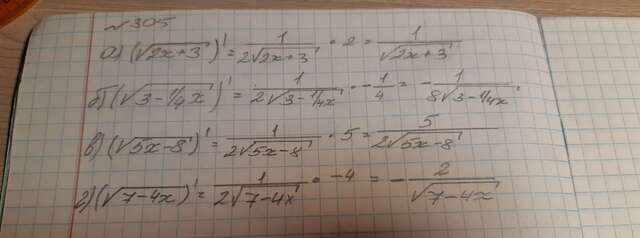 №305
а) (√2x+3)' = 1/(2√2x+3) · 2 = 1/√2x+3
б) (√3-1/4x)' = 1/(2√3-1/4x) · -1/4 = -1/(8√3-1/4x)
в) (√5x-8)' = 1/(2√5x-8) · 5 = 5/(2√5x-8)
г) (√7-4x)' = 1/(2√7-4x) · -4 = -2/√7-4x